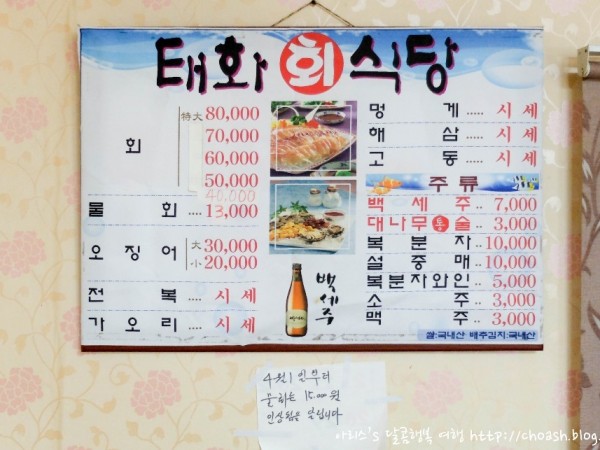 태화 회 식당
회 特大 80,000
70,000
60,000
50,000
40,000
물 회 13,000
오징어 大 30,000
小 20,000
전 복 .... 시 세
가 오 리 .... 시 세
백세주
멍 게 ..... 시 세
해 삼 ..... 시 세
고 동 ..... 시 세
주 류
백 세 주 .. 7,000
대나무통술 .. 3,000
복 분 자 .. 10,000
설 중 매 .. 10,000
복분자와인 .. 5,000
소 주 .. 3,000
맥 주 .. 3,000
쌀:국내산· 배추김치:국내산
4월1일부터
물회는 15.00원
인상됨을 알립니다
아리스's 달콤행복 여행 http://choash.blog.